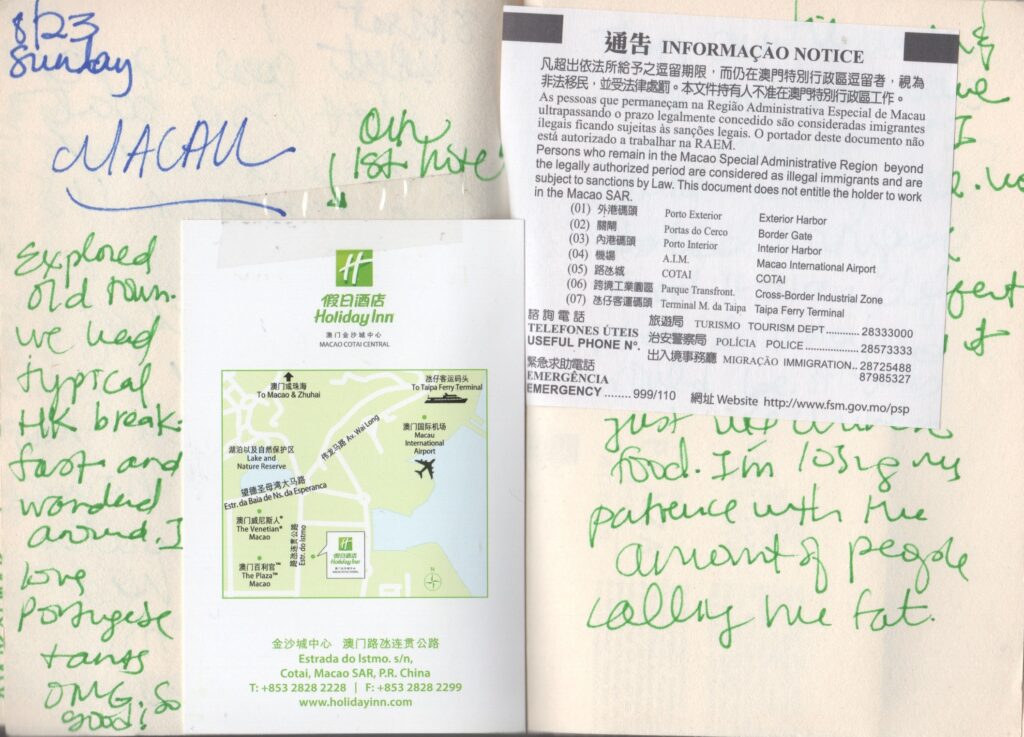 8/23
Sunday
MACAU
our
1st hotel
Explored
old town.
we had
typical
HK break-
fast and
wonderd
around. I
love
Portugese
tarts
OMG. So
good!
假日酒店
Holiday Inn
澳门金沙城中心
MACAO COTAI CENTRAL
澳门或珠海
To Macao & Zhuhai
氹仔客运码头
To Taipa Ferry Terminal
伟龙马路 Av. Wai Long
澳门国际机场
Macau
International
Airport
湖泊以及自然保护区
Lake and
Nature Reserve
望德圣母湾大马路
Estr. da Baia de Ns. da Esperanca
澳门威尼斯人®
The Venetian®
Macao
路氹连贯公路
Estr. do Istmo
假日酒店
Holiday Inn
澳门百利宫™
The Plaza™
Macao
N
金沙城中心 澳门路氹连贯公路
Estrada do Istmo. s/n,
Cotai, Macao SAR, P.R. China
T: +853 2828 2228 | F: +853 2828 2299
www.holidayinn.com
通告 INFORMAÇÃO NOTICE
凡超出依法所給予之逗留期限，而仍在澳門特別行政區逗留者，視為
非法移民，並受法律處罰。本文件持有人不准在澳門特別行政區工作。
As pessoas que permaneçam na Região Administrativa Especial de Macau
ultrapassando o prazo legalmente concedido são consideradas imigrantes
ilegais ficando sujeitas às sanções legais. O portador deste documento não
está autorizado a trabalhar na RAEM.
Persons who remain in the Macao Special Administrative Region beyond
the legally authorized period are considered as illegal immigrants and are
subject to sanctions by Law. This document does not entitle the holder to work
in the Macao SAR.
(01) 外港碼頭 Porto Exterior Exterior Harbor
(02) 關閘 Portas do Cerco Border Gate
(03) 內港碼頭 Porto Interior Interior Harbor
(04) 機場 A.I.M. Macao International Airport
(05) 路氹城 COTAI COTAI
(06) 跨境工業園區 Parque Transfront. Cross-Border Industrial Zone
(07) 氹仔客運碼頭 Terminal M. da Taipa Taipa Ferry Terminal
諮詢電話
TELEFONES ÚTEIS
USEFUL PHONE Nº.
旅遊局 TURISMO TOURISM DEPT ............ 28333000
治安警察局 POLÍCIA POLICE ................... 28573333
出入境事務廳 MIGRAÇÃO IMMIGRATION.. 28725488
87985327
緊急求助電話
EMERGÊNCIA
EMERGENCY ........ 999/110 網址 Website http://www.fsm.gov.mo/psp
just
food. I'm losing my
patience with the
amount of people
calling me fat.